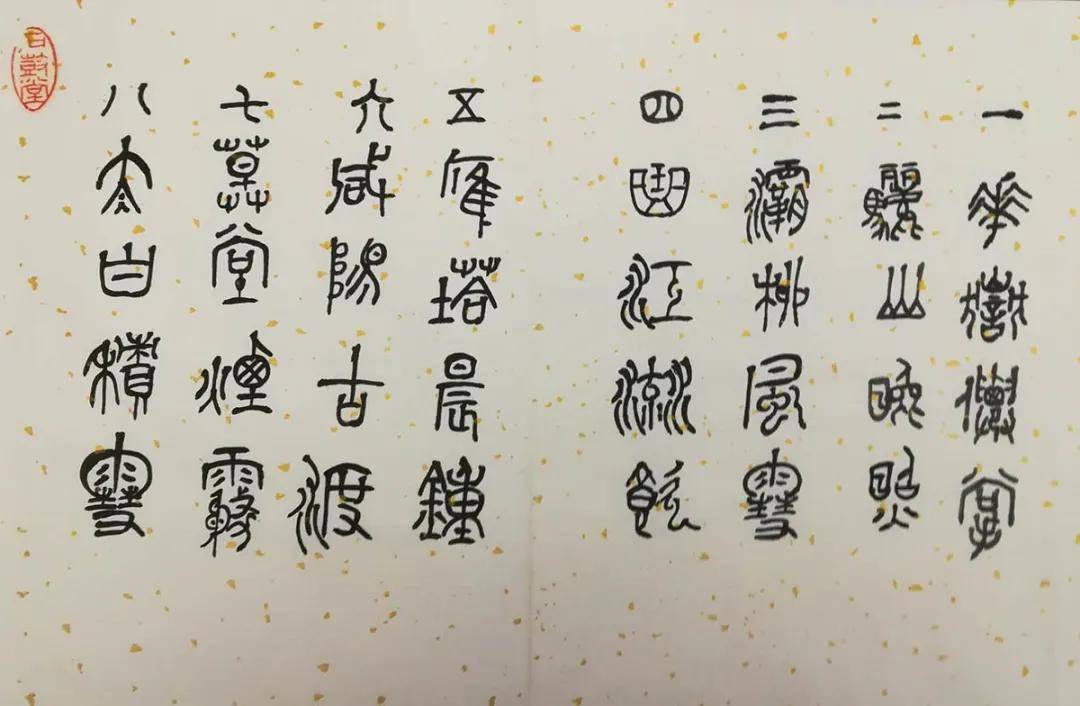 一華嶽僊掌
二驪山晚照
三灞柳風雪
四曲江流飲
五雁塔晨鍾
六咸陽古渡
七草堂煙霧
八太白積雪
石鼓堂